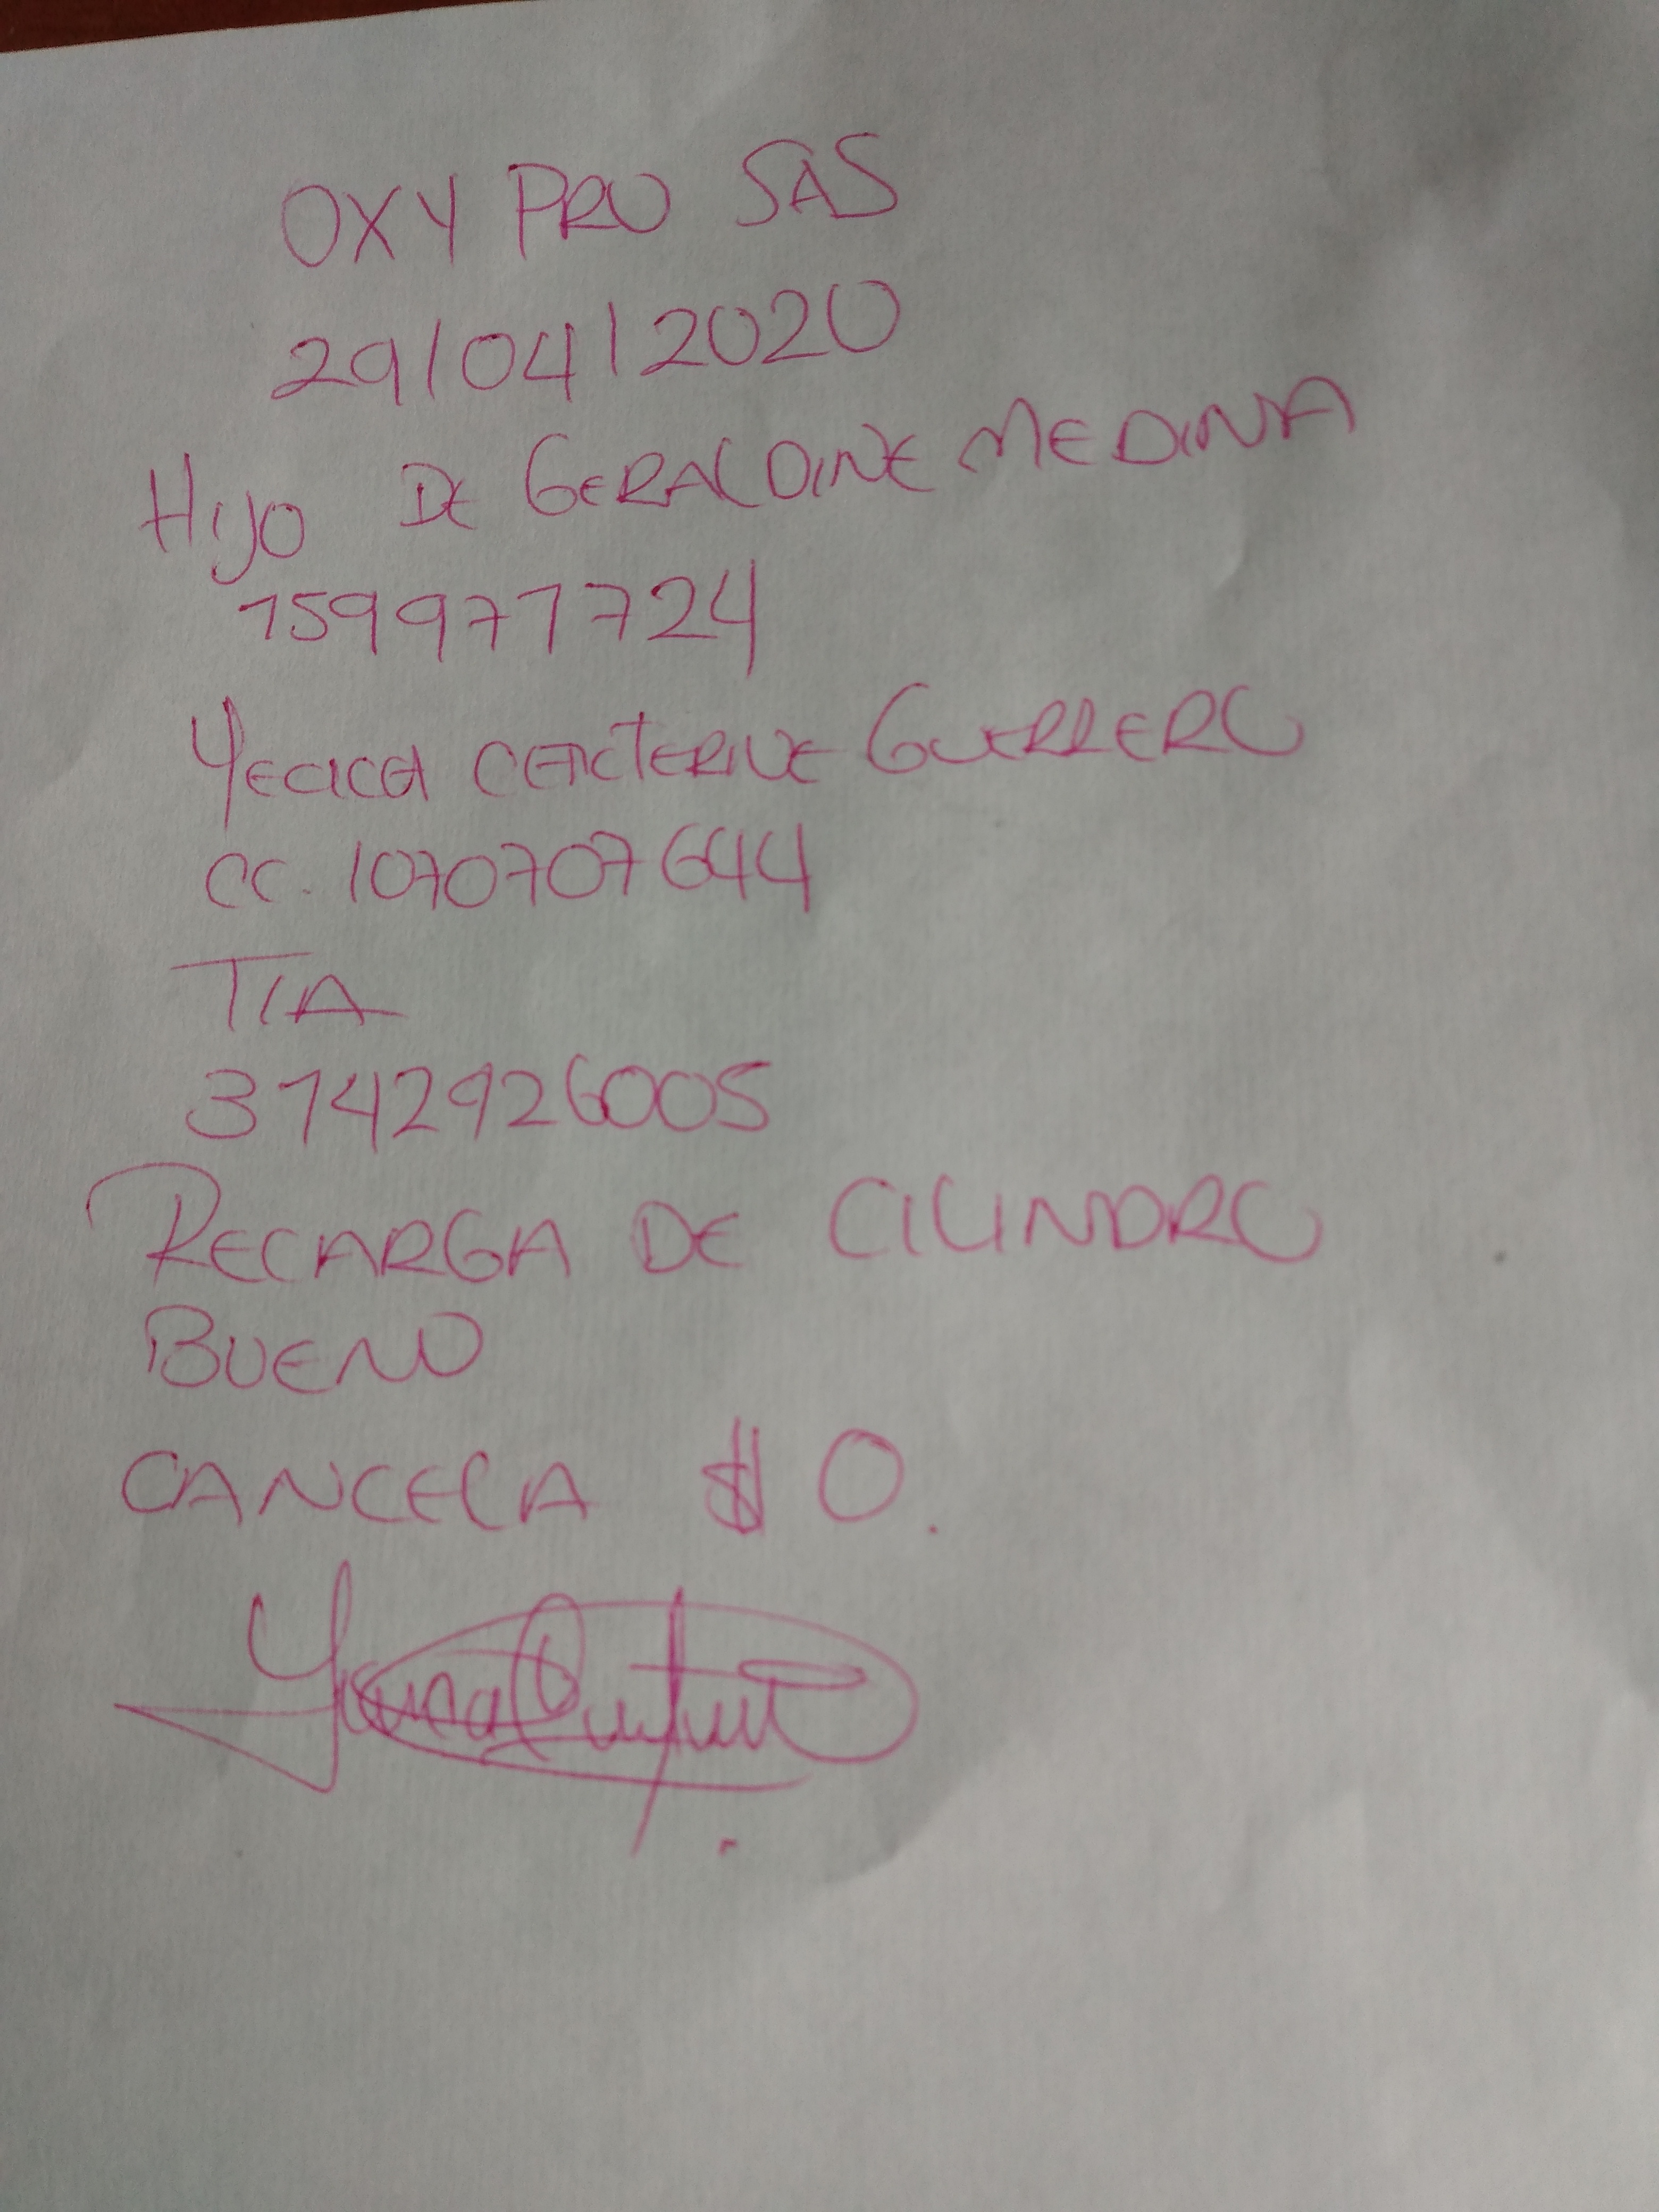 OXY PRO SAS
29/04/2020
HIJO DE GERALDINE MEDINA
159971724
GUERRERO
CC. 1070707644
TIA
3142926005
RECARGA DE CILINDRO
BUENO
CANCELA $ 0.